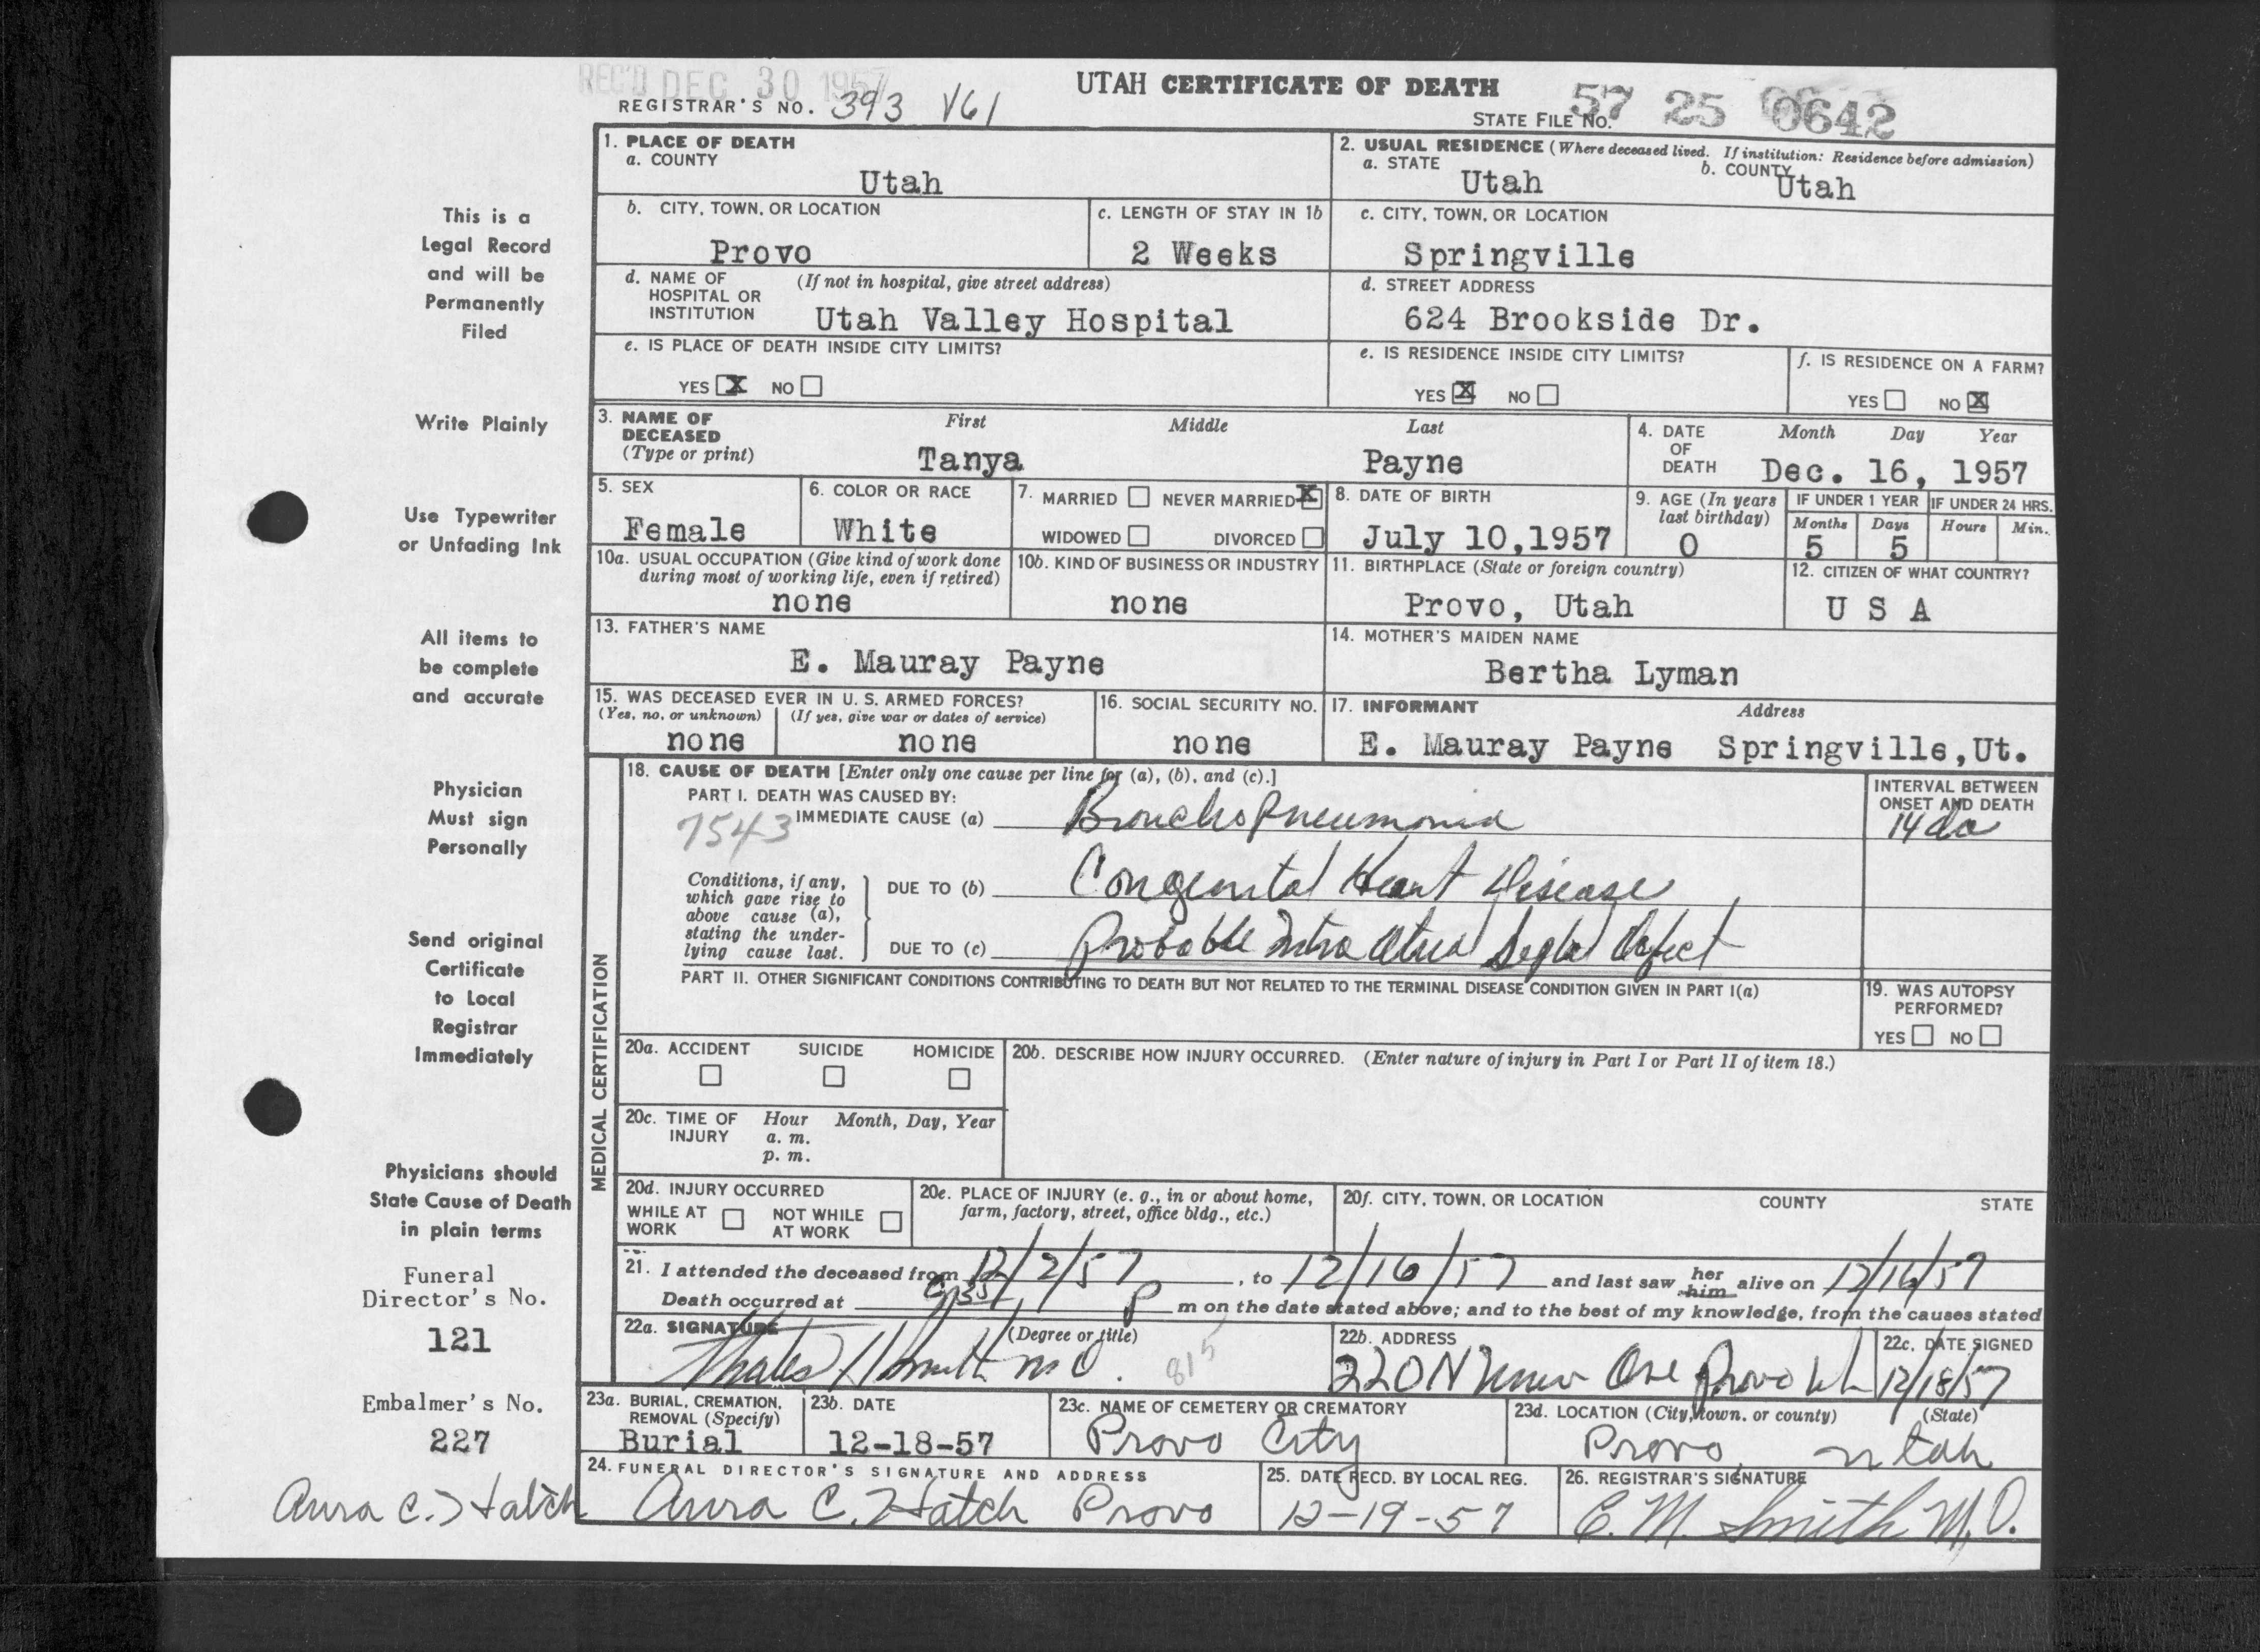 REC'D DEC 30 1957
UTAH CERTIFICATE OF DEATH
REGISTRAR'S NO. 393 V61
STATE FILE NO. 57 25 0642
This is a
Legal Record
and will be
Permanently
Filed
Write Plainly
Use Typewriter
or Unfading Ink
All items to
be complete
and accurate
Physician
Must sign
Personally
Send original
Certificate
to Local
Registrar
Immediately
Physicians should
State Cause of Death
in plain terms
Funeral
Director's No.
121
Embalmer's No.
227
Aura C. Hatch
1. PLACE OF DEATH
a. COUNTY
Utah
2. USUAL RESIDENCE (Where deceased lived. If institution: Residence before admission)
a. STATE Utah b. COUNTY Utah
b. CITY, TOWN, OR LOCATION
Provo
c. LENGTH OF STAY IN 1b
2 Weeks
c. CITY, TOWN, OR LOCATION
Springville
d. NAME OF (If not in hospital, give street address)
HOSPITAL OR
INSTITUTION Utah Valley Hospital
d. STREET ADDRESS
624 Brookside Dr.
e. IS PLACE OF DEATH INSIDE CITY LIMITS?
YES X NO
e. IS RESIDENCE INSIDE CITY LIMITS?
YES X NO
f. IS RESIDENCE ON A FARM?
YES NO X
3. NAME OF First Middle Last
DECEASED
(Type or print) Tanya Payne
4. DATE Month Day Year
OF
DEATH Dec. 16, 1957
5. SEX
Female
6. COLOR OR RACE
White
7. MARRIED NEVER MARRIED X
WIDOWED DIVORCED
8. DATE OF BIRTH
July 10,1957
9. AGE (In years
last birthday)
0
IF UNDER 1 YEAR IF UNDER 24 HRS.
Months Days Hours Min.
5 5
10a. USUAL OCCUPATION (Give kind of work done
during most of working life, even if retired)
none
10b. KIND OF BUSINESS OR INDUSTRY
none
11. BIRTHPLACE (State or foreign country)
Provo, Utah
12. CITIZEN OF WHAT COUNTRY?
U S A
13. FATHER'S NAME
E. Mauray Payne
14. MOTHER'S MAIDEN NAME
Bertha Lyman
15. WAS DECEASED EVER IN U. S. ARMED FORCES?
(Yes, no, or unknown) (If yes, give war or dates of service)
none none
16. SOCIAL SECURITY NO.
none
17. INFORMANT Address
E. Mauray Payne Springville,Ut.
MEDICAL CERTIFICATION
18. CAUSE OF DEATH [Enter only one cause per line for (a), (b), and (c).]
PART I. DEATH WAS CAUSED BY:
7543 IMMEDIATE CAUSE (a) Bronchopneumonia
INTERVAL BETWEEN
ONSET AND DEATH
14 da
Conditions, if any,
which gave rise to
above cause (a),
stating the under-
lying cause last.
DUE TO (b) Congenital Heart Disease
DUE TO (c) Probable Intra Atrial Septal defect
PART II. OTHER SIGNIFICANT CONDITIONS CONTRIBUTING TO DEATH BUT NOT RELATED TO THE TERMINAL DISEASE CONDITION GIVEN IN PART I(a)
19. WAS AUTOPSY
PERFORMED?
YES NO
20a. ACCIDENT SUICIDE HOMICIDE
20b. DESCRIBE HOW INJURY OCCURRED. (Enter nature of injury in Part I or Part II of item 18.)
20c. TIME OF Hour Month, Day, Year
INJURY a. m.
p. m.
20d. INJURY OCCURRED
WHILE AT NOT WHILE
WORK AT WORK
20e. PLACE OF INJURY (e. g., in or about home,
farm, factory, street, office bldg., etc.)
20f. CITY, TOWN, OR LOCATION COUNTY STATE
21. I attended the deceased from 12/2/57, to 12/16/57 and last saw her him alive on 12/16/57
Death occurred at 9:35 P m on the date stated above; and to the best of my knowledge, from the causes stated
22a. SIGNATURE (Degree or title)
Thales H Smith MD. 815
22b. ADDRESS
220 N Univ Ave Provo Ut
22c. DATE SIGNED
12/18/57
23a. BURIAL, CREMATION,
REMOVAL (Specify)
Burial
23b. DATE
12-18-57
23c. NAME OF CEMETERY OR CREMATORY
Provo City
23d. LOCATION (City, town, or county) (State)
Provo, Utah
24. FUNERAL DIRECTOR'S SIGNATURE AND ADDRESS
Aura C. Hatch Provo
25. DATE RECD. BY LOCAL REG.
12-19-57
26. REGISTRAR'S SIGNATURE
E. M. Smith M.D.